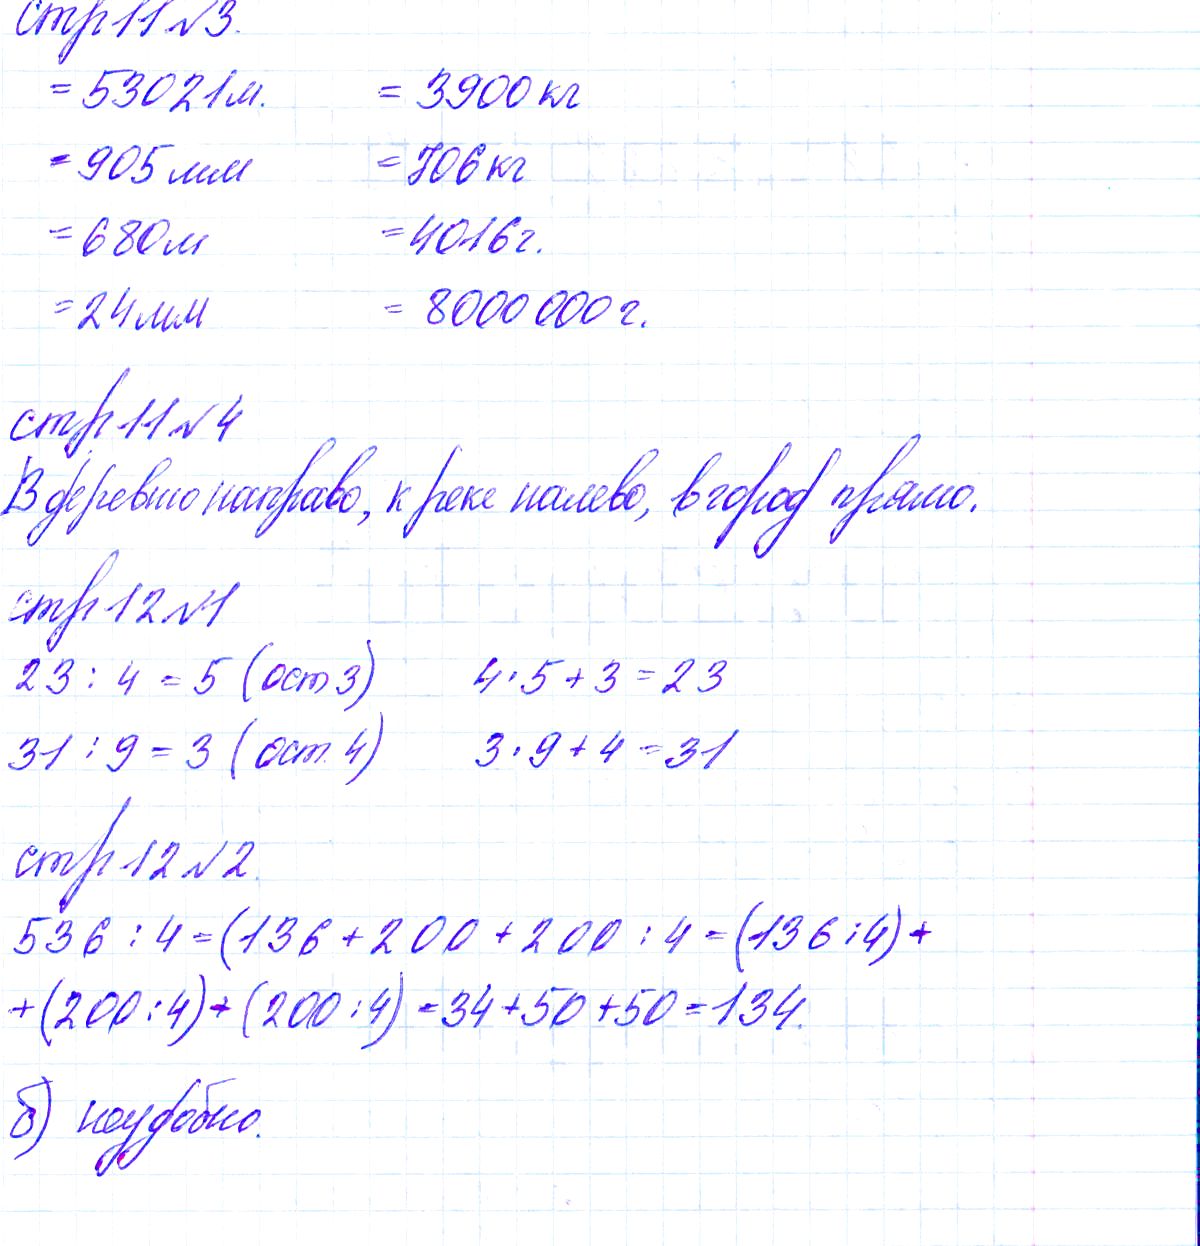 стр 11 №3.
= 53021м. = 3900 кг
= 905 мм = 706 кг
= 680м = 4016г.
= 24 мм = 8000 000 г.
стр 11 №4
В деревню направо, к реке налево, в город прямо.
стр 12 №1
23 : 4 = 5 (ост 3) 4·5+3=23
31 : 9 = 3 (ост. 4) 3·9+4=31
стр 12 №2.
536 : 4 = (136 + 200 + 200 : 4 = (136 : 4) +
+ (200 : 4) + (200 : 4) = 34 + 50 + 50 = 134.
б) неудобно.